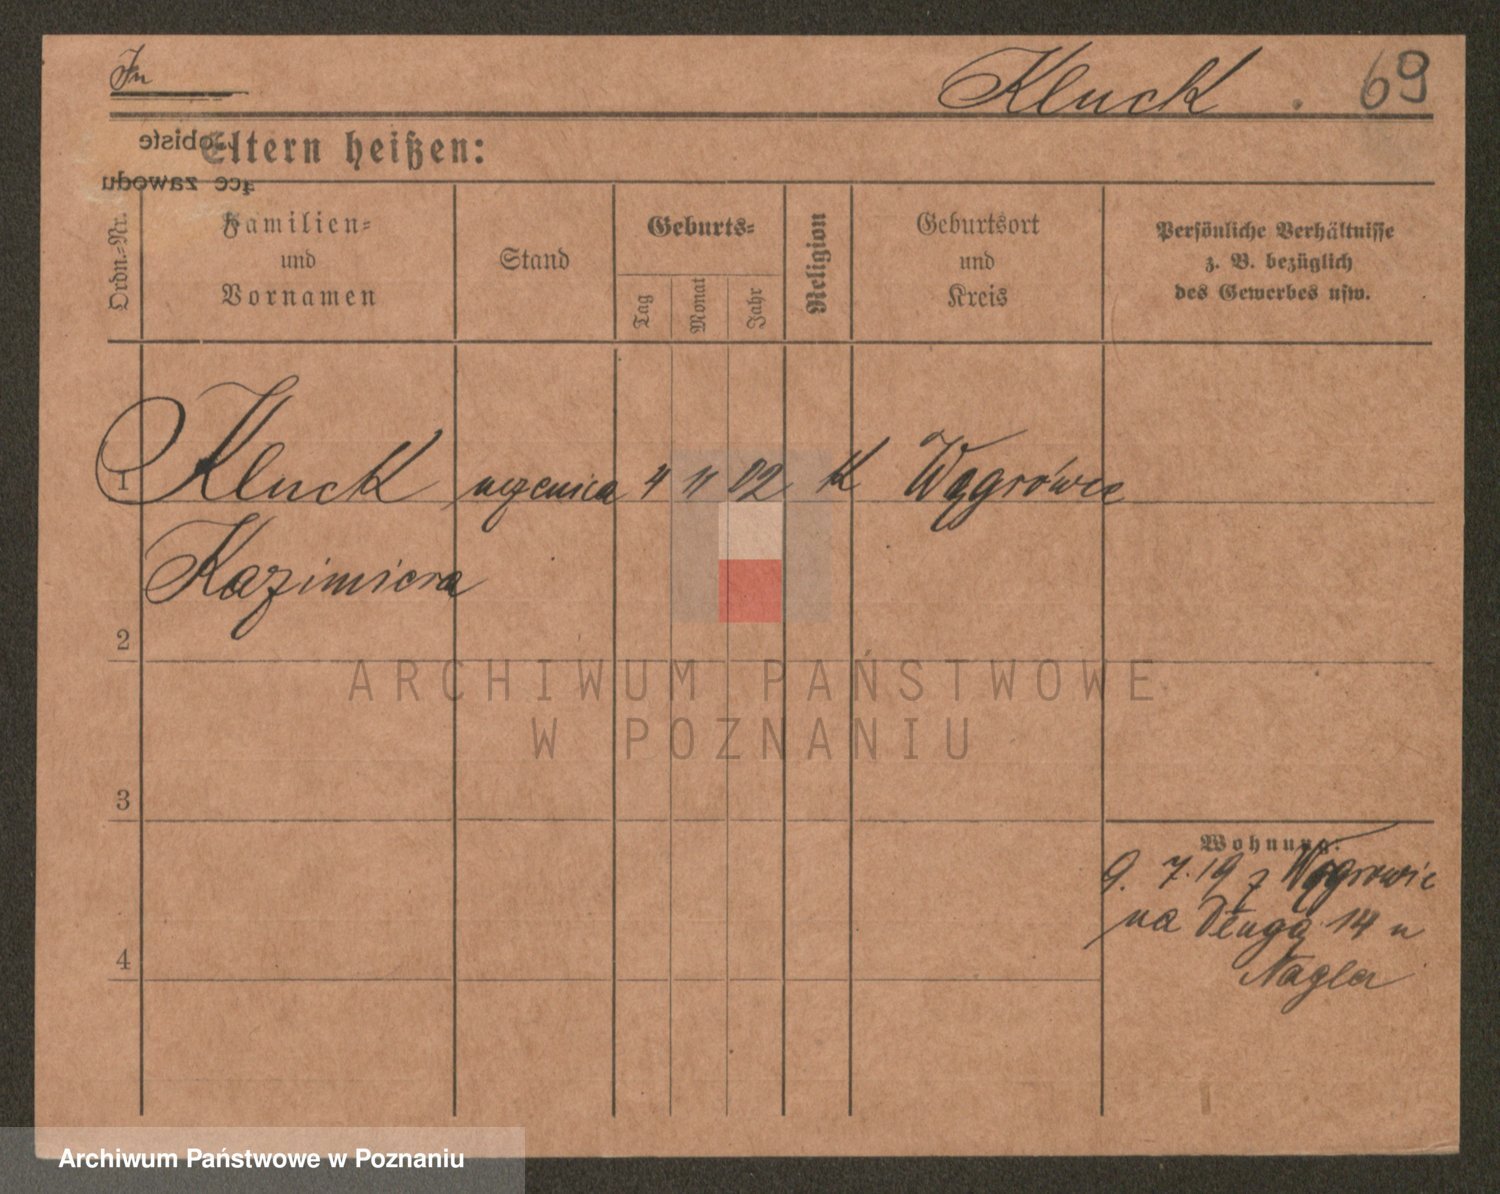 Fu
Kluck . 69
Eltern heißen:
obiste
ące zawodu
Ordn.-Nr.
Familien-
und
Vornamen
Stand
Geburts-
Tag
Monat
Jahr
Religion
Geburtsort
und
Kreis
Persönliche Verhältnisse
z. B. bezüglich
des Gewerbes usw.
1 Kluck uczenica 4 11 02 K Wągrówiec
Kazimiera
2
ARCHIWUM PAŃSTWOWE
W POZNANIU
3
Wohnung:
9. 7.19 z Wągrowic
na Długą 14 u
4
Nagla
Archiwum Państwowe w Poznaniu